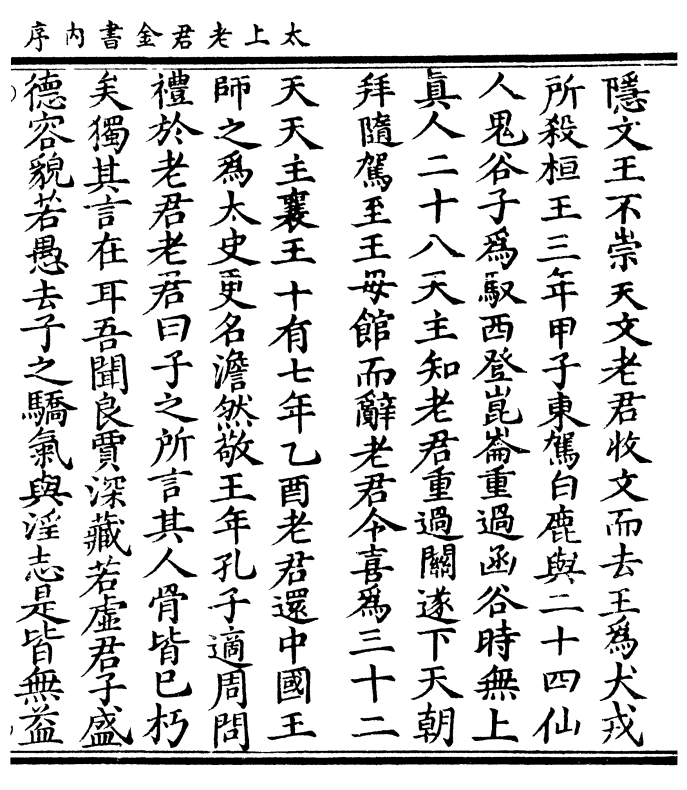 太上老君金書內序
隱文王不崇天文老君收文而去王爲犬戎
所殺桓王三年甲子東駕白鹿與二十四仙
人鬼谷子爲馭西登崑崙重過函谷時無上
眞人二十八天主知老君重過關遂下天朝
拜隨駕至王母館而辭老君令喜爲三十二
天天主襄王十有七年乙酉老君還中國王
師之爲太史更名澹然敬王年孔子適周問
禮於老君老君曰子之所言其人骨皆已朽
矣獨其言在耳吾聞良賈深藏若虛君子盛
德容貌若愚去子之驕氣與淫志是皆無益